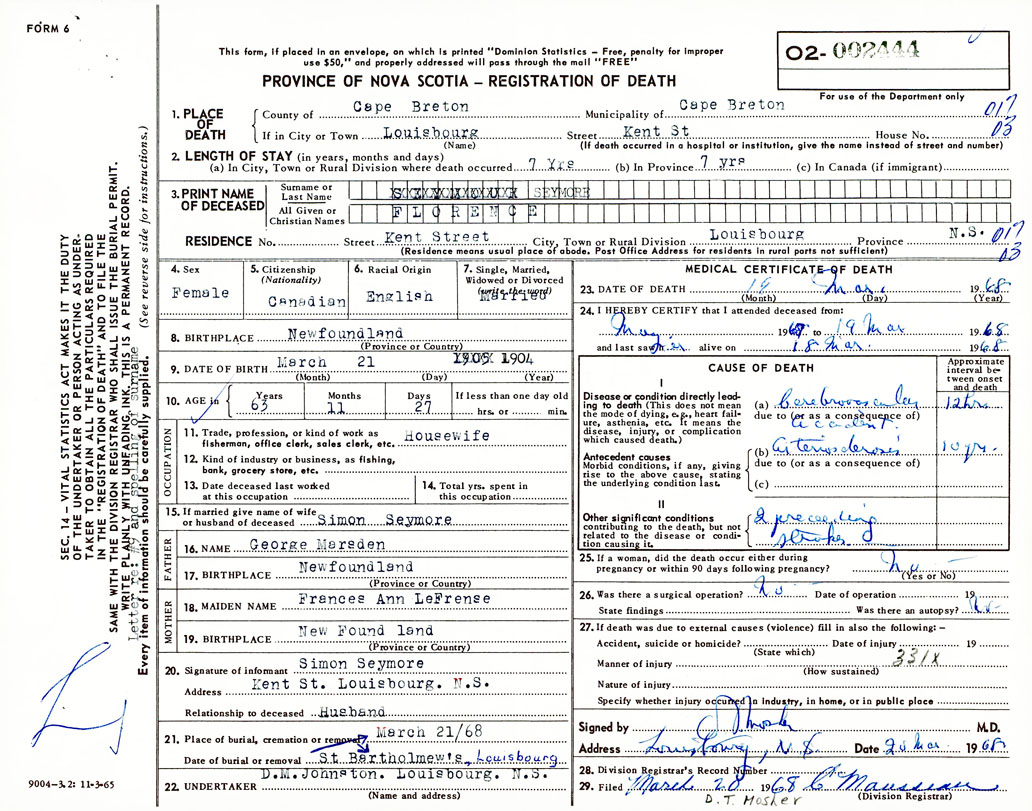 FORM 6
O2-002444
This form, if placed in an envelope, on which is printed "Dominion Statistics – Free, penalty for improper
use $50," and properly addressed will pass through the mail "FREE"
PROVINCE OF NOVA SCOTIA – REGISTRATION OF DEATH
For use of the Department only
1. PLACE OF DEATH
County of Cape Breton Municipality of Cape Breton 017
If in City or Town Louisbourg Street Kent St House No. 03
(Name) (If death occurred in a hospital or institution, give the name instead of street and number)
2. LENGTH OF STAY (in years, months and days)
(a) In City, Town or Rural Division where death occurred 7 Yrs (b) In Province 7 yrs (c) In Canada (if immigrant)
3. PRINT NAME OF DECEASED
Surname or Last Name SEYMORE
All Given or Christian Names FLORENCE
RESIDENCE No. Street Kent Street City, Town or Rural Division Louisbourg Province N.S. 017
(Residence means usual place of abode. Post Office Address for residents in rural parts not sufficient) 03
4. Sex Female
5. Citizenship (Nationality) Canadian
6. Racial Origin English
7. Single, Married, Widowed or Divorced (write the word) Married
8. BIRTHPLACE Newfoundland
(Province or Country)
9. DATE OF BIRTH March 21 1904
(Month) (Day) (Year)
10. AGE in Years 63 Months 11 Days 27 If less than one day old hrs. or min.
OCCUPATION
11. Trade, profession, or kind of work as fisherman, office clerk, sales clerk, etc. Housewife
12. Kind of industry or business, as fishing, bank, grocery store, etc.
13. Date deceased last worked at this occupation
14. Total yrs. spent in this occupation
15. If married give name of wife or husband of deceased Simon Seymore
FATHER
16. NAME George Marsden
17. BIRTHPLACE Newfoundland
(Province or Country)
MOTHER
18. MAIDEN NAME Frances Ann LeFrense
19. BIRTHPLACE New Found land
(Province or Country)
20. Signature of informant Simon Seymore
Address Kent St. Louisbourg. N.S.
Relationship to deceased Husband
21. Place of burial, cremation or removal March 21/68
Date of burial or removal St Bartholmew's, Louisbourg
22. UNDERTAKER D.M.Johnston. Louisbourg. N.S.
(Name and address)
MEDICAL CERTIFICATE OF DEATH
23. DATE OF DEATH 19 Mar. 1968
(Month) (Day) (Year)
24. I HEREBY CERTIFY that I attended deceased from:
1967 to 19 Mar 1968
and last saw her alive on 18 Mar. 1968
CAUSE OF DEATH
Approximate interval between onset and death
I
Disease or condition directly leading to death (This does not mean the mode of dying, e.g., heart failure, asthenia, etc. It means the disease, injury, or complication which caused death.)
(a) Cerebrovascular 12 hrs
due to (or as a consequence of)
accident.
Antecedent causes
Morbid conditions, if any, giving rise to the above cause, stating the underlying condition last.
(b) Arteriosclerosis 10 yrs.
due to (or as a consequence of)
(c)
II
Other significant conditions contributing to the death, but not related to the disease or condition causing it.
2 preceeding
strokes
25. If a woman, did the death occur either during pregnancy or within 90 days following pregnancy? No
(Yes or No)
26. Was there a surgical operation? No Date of operation 19
State findings Was there an autopsy? No
27. If death was due to external causes (violence) fill in also the following: –
Accident, suicide or homicide? Date of injury 19
(State which)
Manner of injury 331X
(How sustained)
Nature of injury
Specify whether injury occurred in Industry, in home, or in public place
Signed by M.D.
Address Louisbourg, N.S. Date 20 Mar 1968
28. Division Registrar's Record Number
29. Filed March 20 1968
D.T. Mosher (Division Registrar)
SEC. 14 – VITAL STATISTICS ACT MAKES IT THE DUTY
OF THE UNDERTAKER OR PERSON ACTING AS UNDER-
TAKER TO OBTAIN ALL THE PARTICULARS REQUIRED
IN THE "REGISTRATION OF DEATH" AND TO FILE THE
SAME WITH THE DIVISION REGISTRAR WHO SHALL ISSUE THE BURIAL PERMIT.
WRITE PLAINLY WITH UNFADING INK. THIS IS A PERMANENT RECORD.
Letter re: #9 and spelling of surname
Every item of information should be carefully supplied. (See reverse side for instructions.)
9004-3.2: 11-3-65